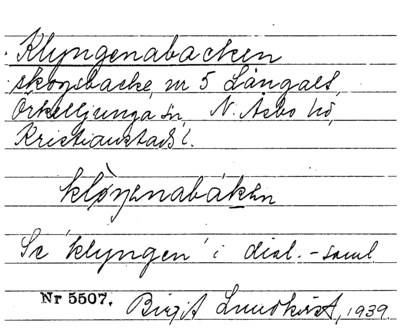 Klyngenabacken
skogsbacke, nr 5 Långalt,
Örkelljunga sn, N. Asbo hd,
Kristianstads l.
kløŋenabákən
Se 'klyngen' i dial.-saml
Nr 5507. Birgit Lundkvist, 1939.